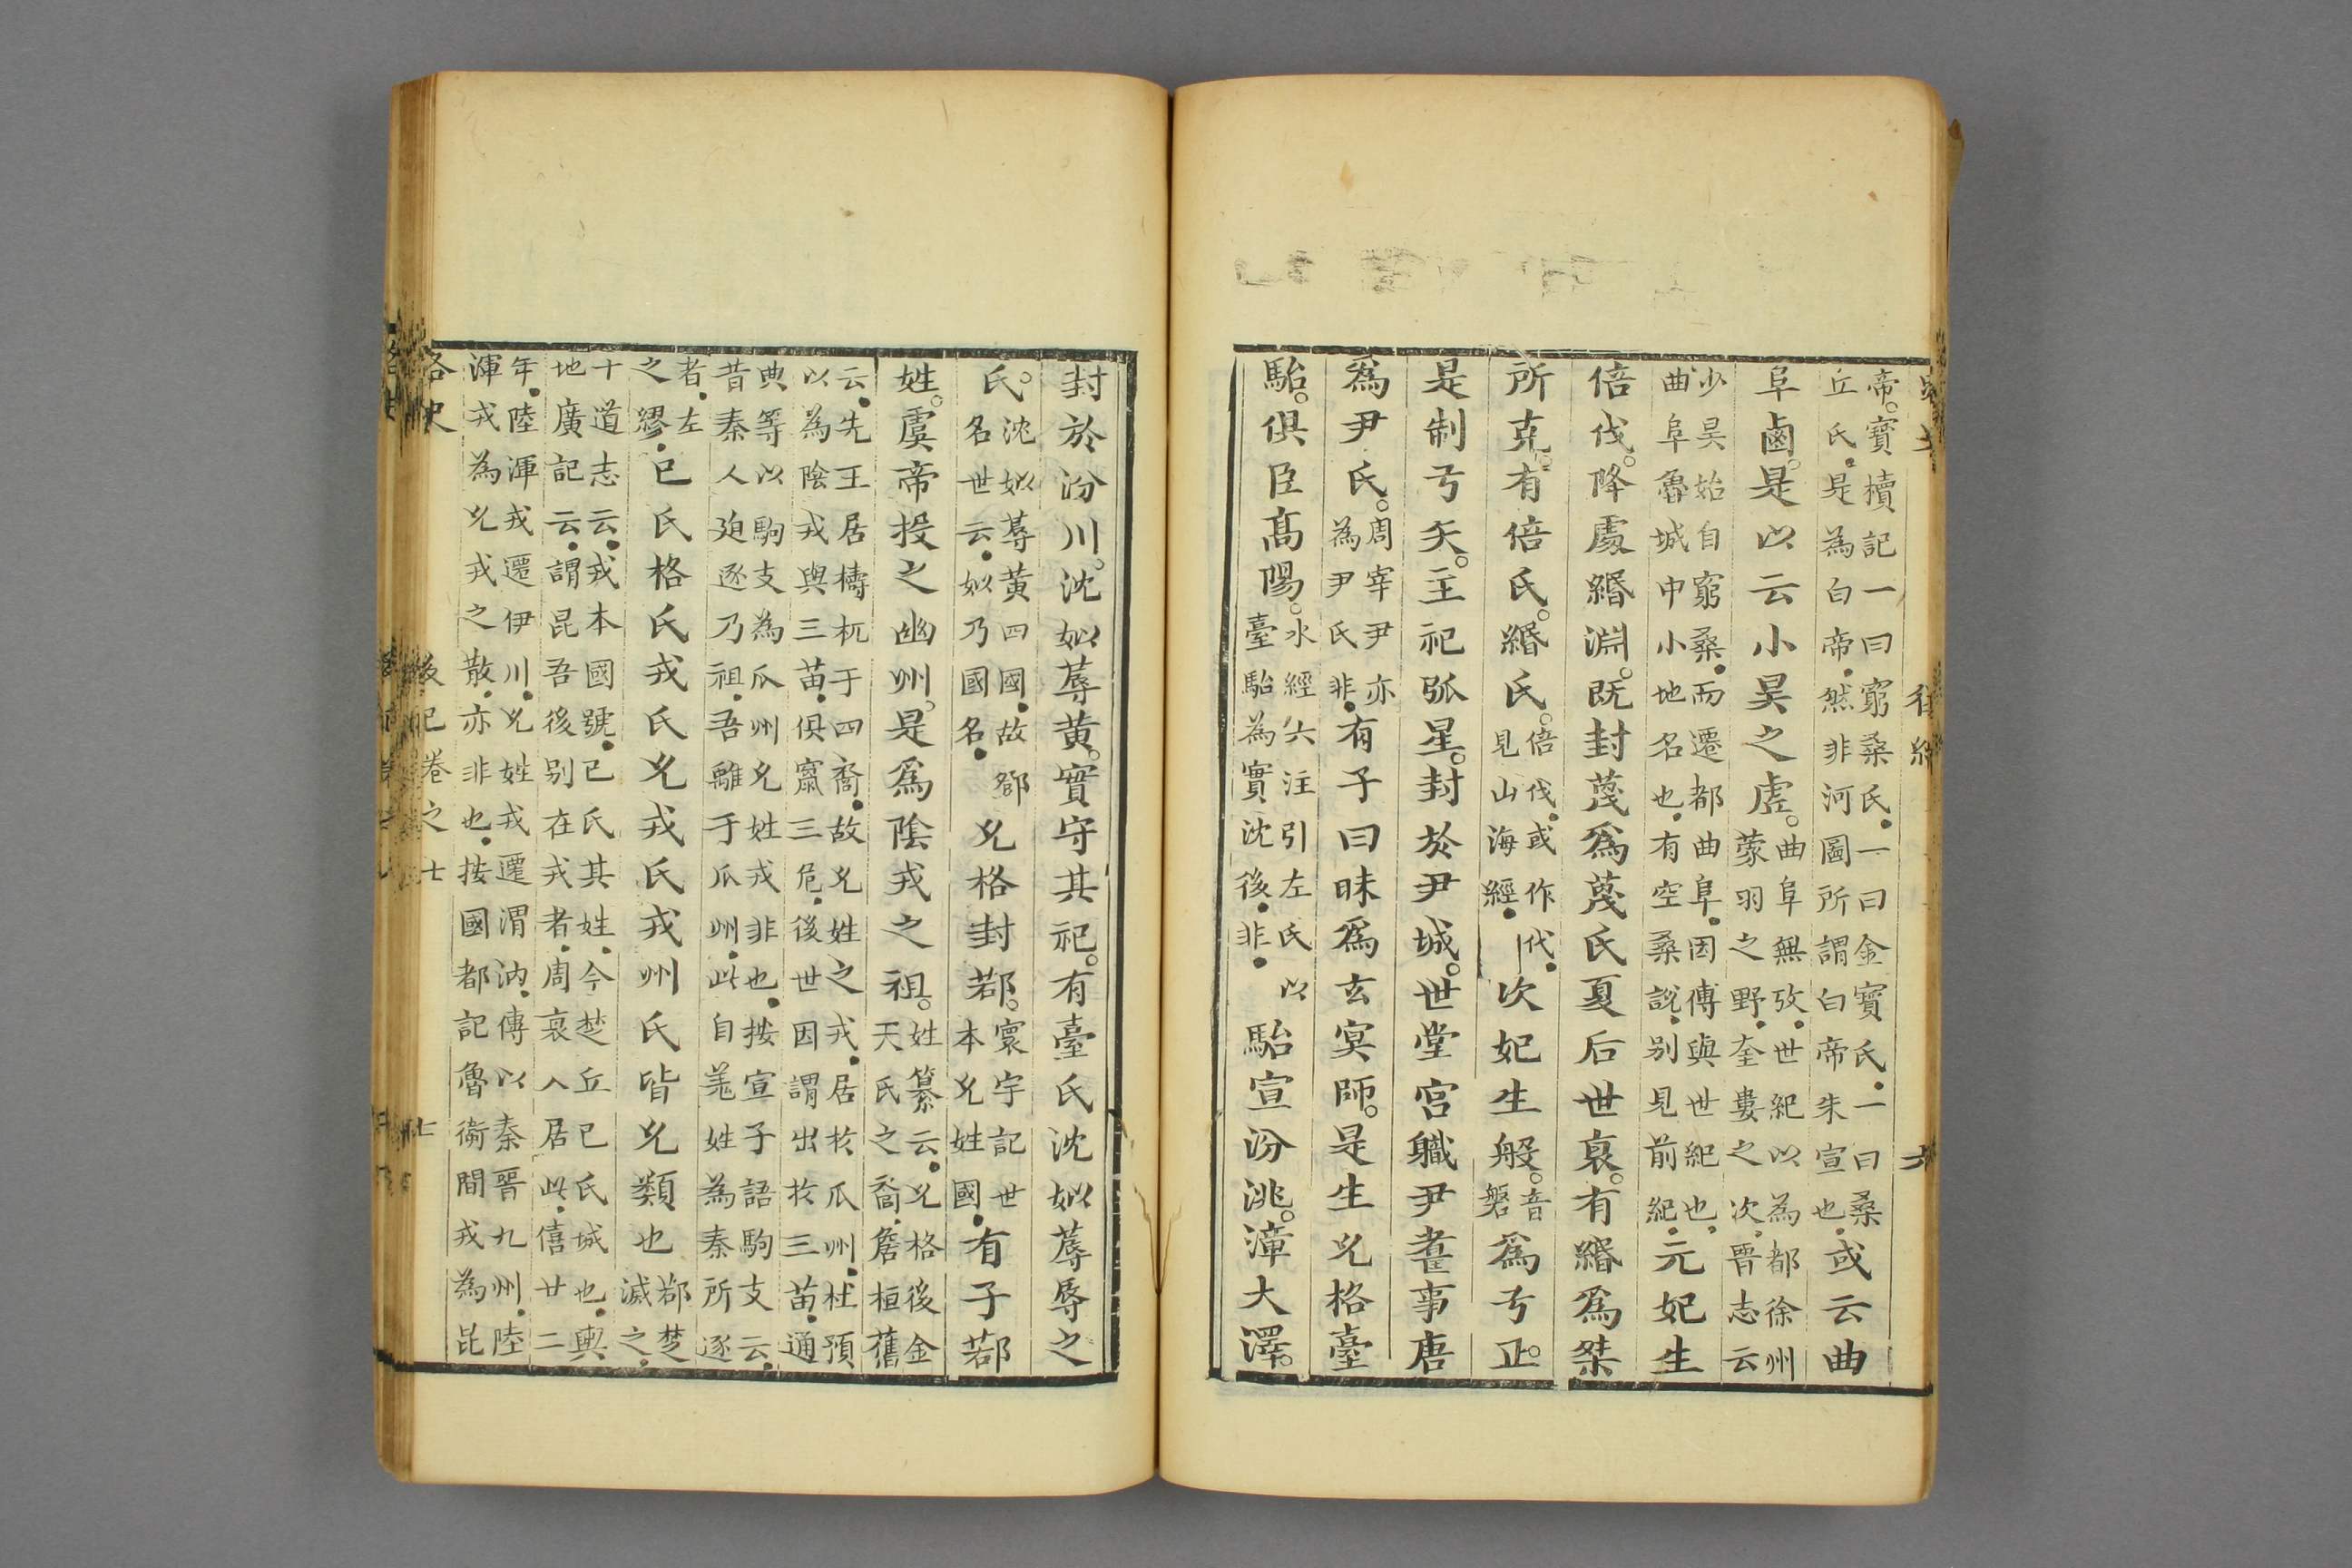 帝。寶櫝記一曰窮桑氏一曰金寶氏一曰桑
丘氏是為白帝然非河圖所謂白帝朱宣也或云曲
阜鹵是以云小昊之虗。曲阜無攷世紀以為都徐州
蒙羽之野奎婁之次晉志云
少昊始自窮桑而遷都曲阜因傅與世紀也
曲阜魯城中小地名也有空桑說别見前紀元妃生
倍伐。降處緡淵。既封蔑爲蔑氏夏后世裒。有緡爲桀
所克。有倍氏。緡氏。倍伐或作代
見山海經次妃生般。音
磐爲弓正。
是制弓矢。主祀弧星。封於尹城。世堂宫職尹畫事唐
爲尹氏。周宰尹亦
為尹氏非有子曰昧爲玄冥師。是生允格臺
駘。俱臣高陽。水經六注引左氏以
臺駘為實沈後非駘宣汾洮。漳大澤。
封於汾川。沈姒蓐黄。實守其祀。有臺氏沈姒蓐辱之
氏。沈姒蓐黄四國故
名世云姒乃國名允格封鄀。寰宇記世
本允姓國有子鄀
姓。虞帝投之幽州。是爲陰戎之祖。姓纂云允格後金
天氏之裔詹桓舊
云先王居檮杌于四裔故允姓之戎居於瓜州杜預
以為陰戎與三苗俱竄三危後世因謂出於三苗通
典等以駒支為瓜州允姓戎非也按宣子語駒支云
昔秦人廹逐乃祖吾離于瓜州此自羗姓為秦所逐
者左
之繆已氏格氏戎氏允戎氏戎州氏皆允類也鄀楚
滅之
十道志云戎本國號已氏其姓今楚丘已氏城也輿
地廣記云謂昆吾後别在戎者周衰入居此僖廿二
年陸渾戎遷伊川允姓戎遷渭汭傳以秦晉九州陸
渾戎為允戎之散亦非也按國都記魯衛間戎為昆
路史 後紀卷之七 七